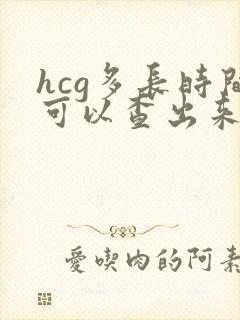 hcg多長時間
可以查出来
愛喫肉的阿素